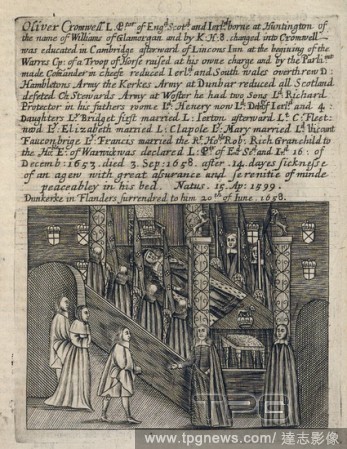 Oliver Cromwell L. Ptor of Engd. Scotd. and Ierld. borne at Huntington of
the name of Williams of Glamorgan and by K. H. 8. changed into Cromwell
was educated in Cambridge afterward of Lincons Inn at the begining of the
Warres Cp: of a Troop of Horse raised at his owne charge and by the Parlmt
made Comander in cheefe reduced Ierld. and South wales overthrew D:
Hambletons Army the Kerkes Army at Dunbar reduced all Scotland
defeted Ch. Stewards Army at Woster he had two Sons Ld. Richard
Protector in his fathers roome Ld. Henery now Ld. of Ierld and 4:
Daughters Ly. Bridget first married L: Ierton afterward L. C: Fleet:
Ly. Elizabeth married L: Clapole Ly. Mary married L. Vicount
Fauconbrige Ly. Francis married the Rt. Ho. Rob: Rich Granchild to
the E: of Warwick was declared L: of 16: of
Decemb: 1653. died 3. Sep: 1658. after 14. dayes sicknesse
of an agew with great assurance and serenitie of minde
peaceabley in his bed. Natus. 15. Ap: 1599.
Dunkerke in Flanders surrendred to him 20th of Iune. 1658.
TPG
www.tpgnews.com / 達志影像